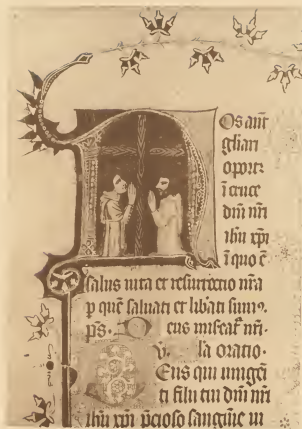 Os aut
gliari
oportꝫ
ī cruce
dn̄i nr̄i
ih̄u xp̄i
ī quo ē
salus uita et resurrectio nr̄a
p quē saluati et libati sumꝰ.
ps. Deus miseaťˀ nr̄i.
V. la oratio.
Eus qui unigēi
ti filii tui dn̄i nr̄i
ih̄u xp̄i p̄cioso sanguīe ui